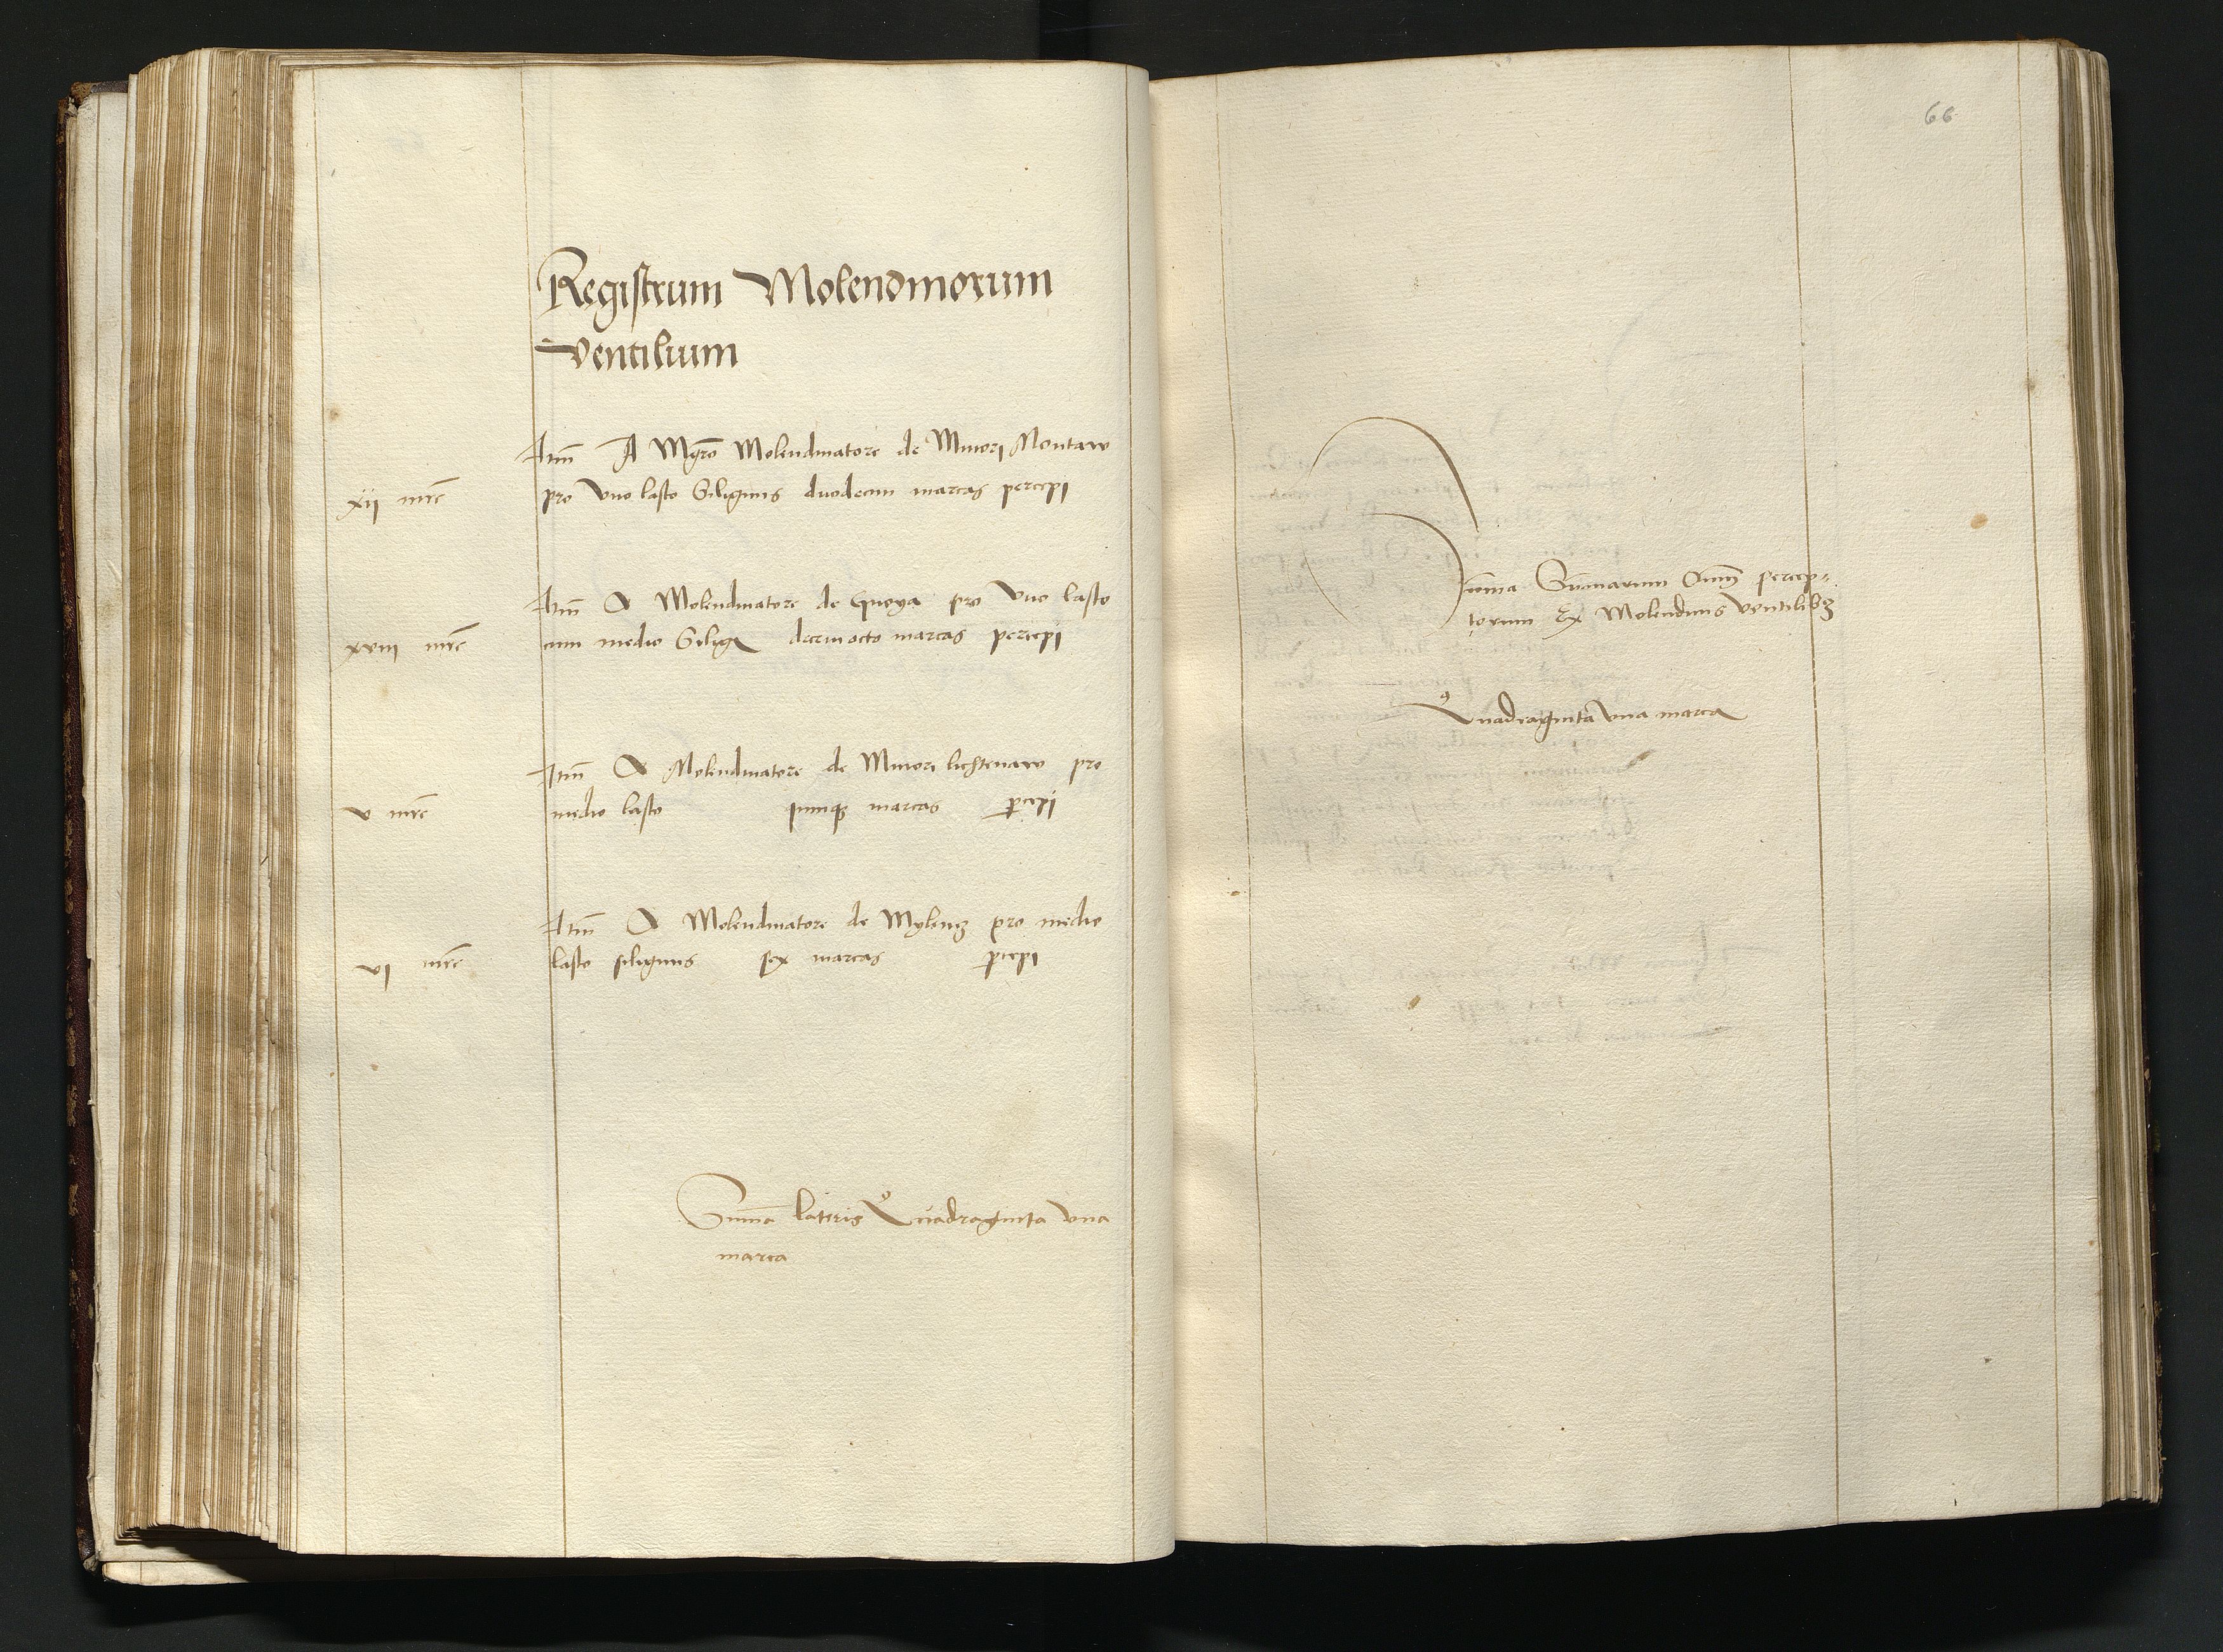 Registrum Molendinorum
Ventilium
Itm̄ A Mgr̄o Molendinatore de Minori Montaw
xii mr̄c pro Vno lasto Siliginis duodecim marcas percepi
Itm̄ A Molendinatore de Gnoya pro Vno lasto
xviii mr̄c cum medio Siliḡ decimocto marcas percepi
Itm̄ A Molendinatore de Minori lichtenaw pro
v mr̄c medio lasto quinqꝫ marcas ꝑcepi
Itm̄ A Molendinatore de Mylenz pro medio
vi mr̄c lasto siliginis sex marcas ꝑcepi
Sum̄a lateris Quadraginta vna
marca
66
Sum̄a Sum̄arum Om̄iu̅ percep⸗
torum Ex Molendinis ventilibꝫ
Quadraginta vna marca